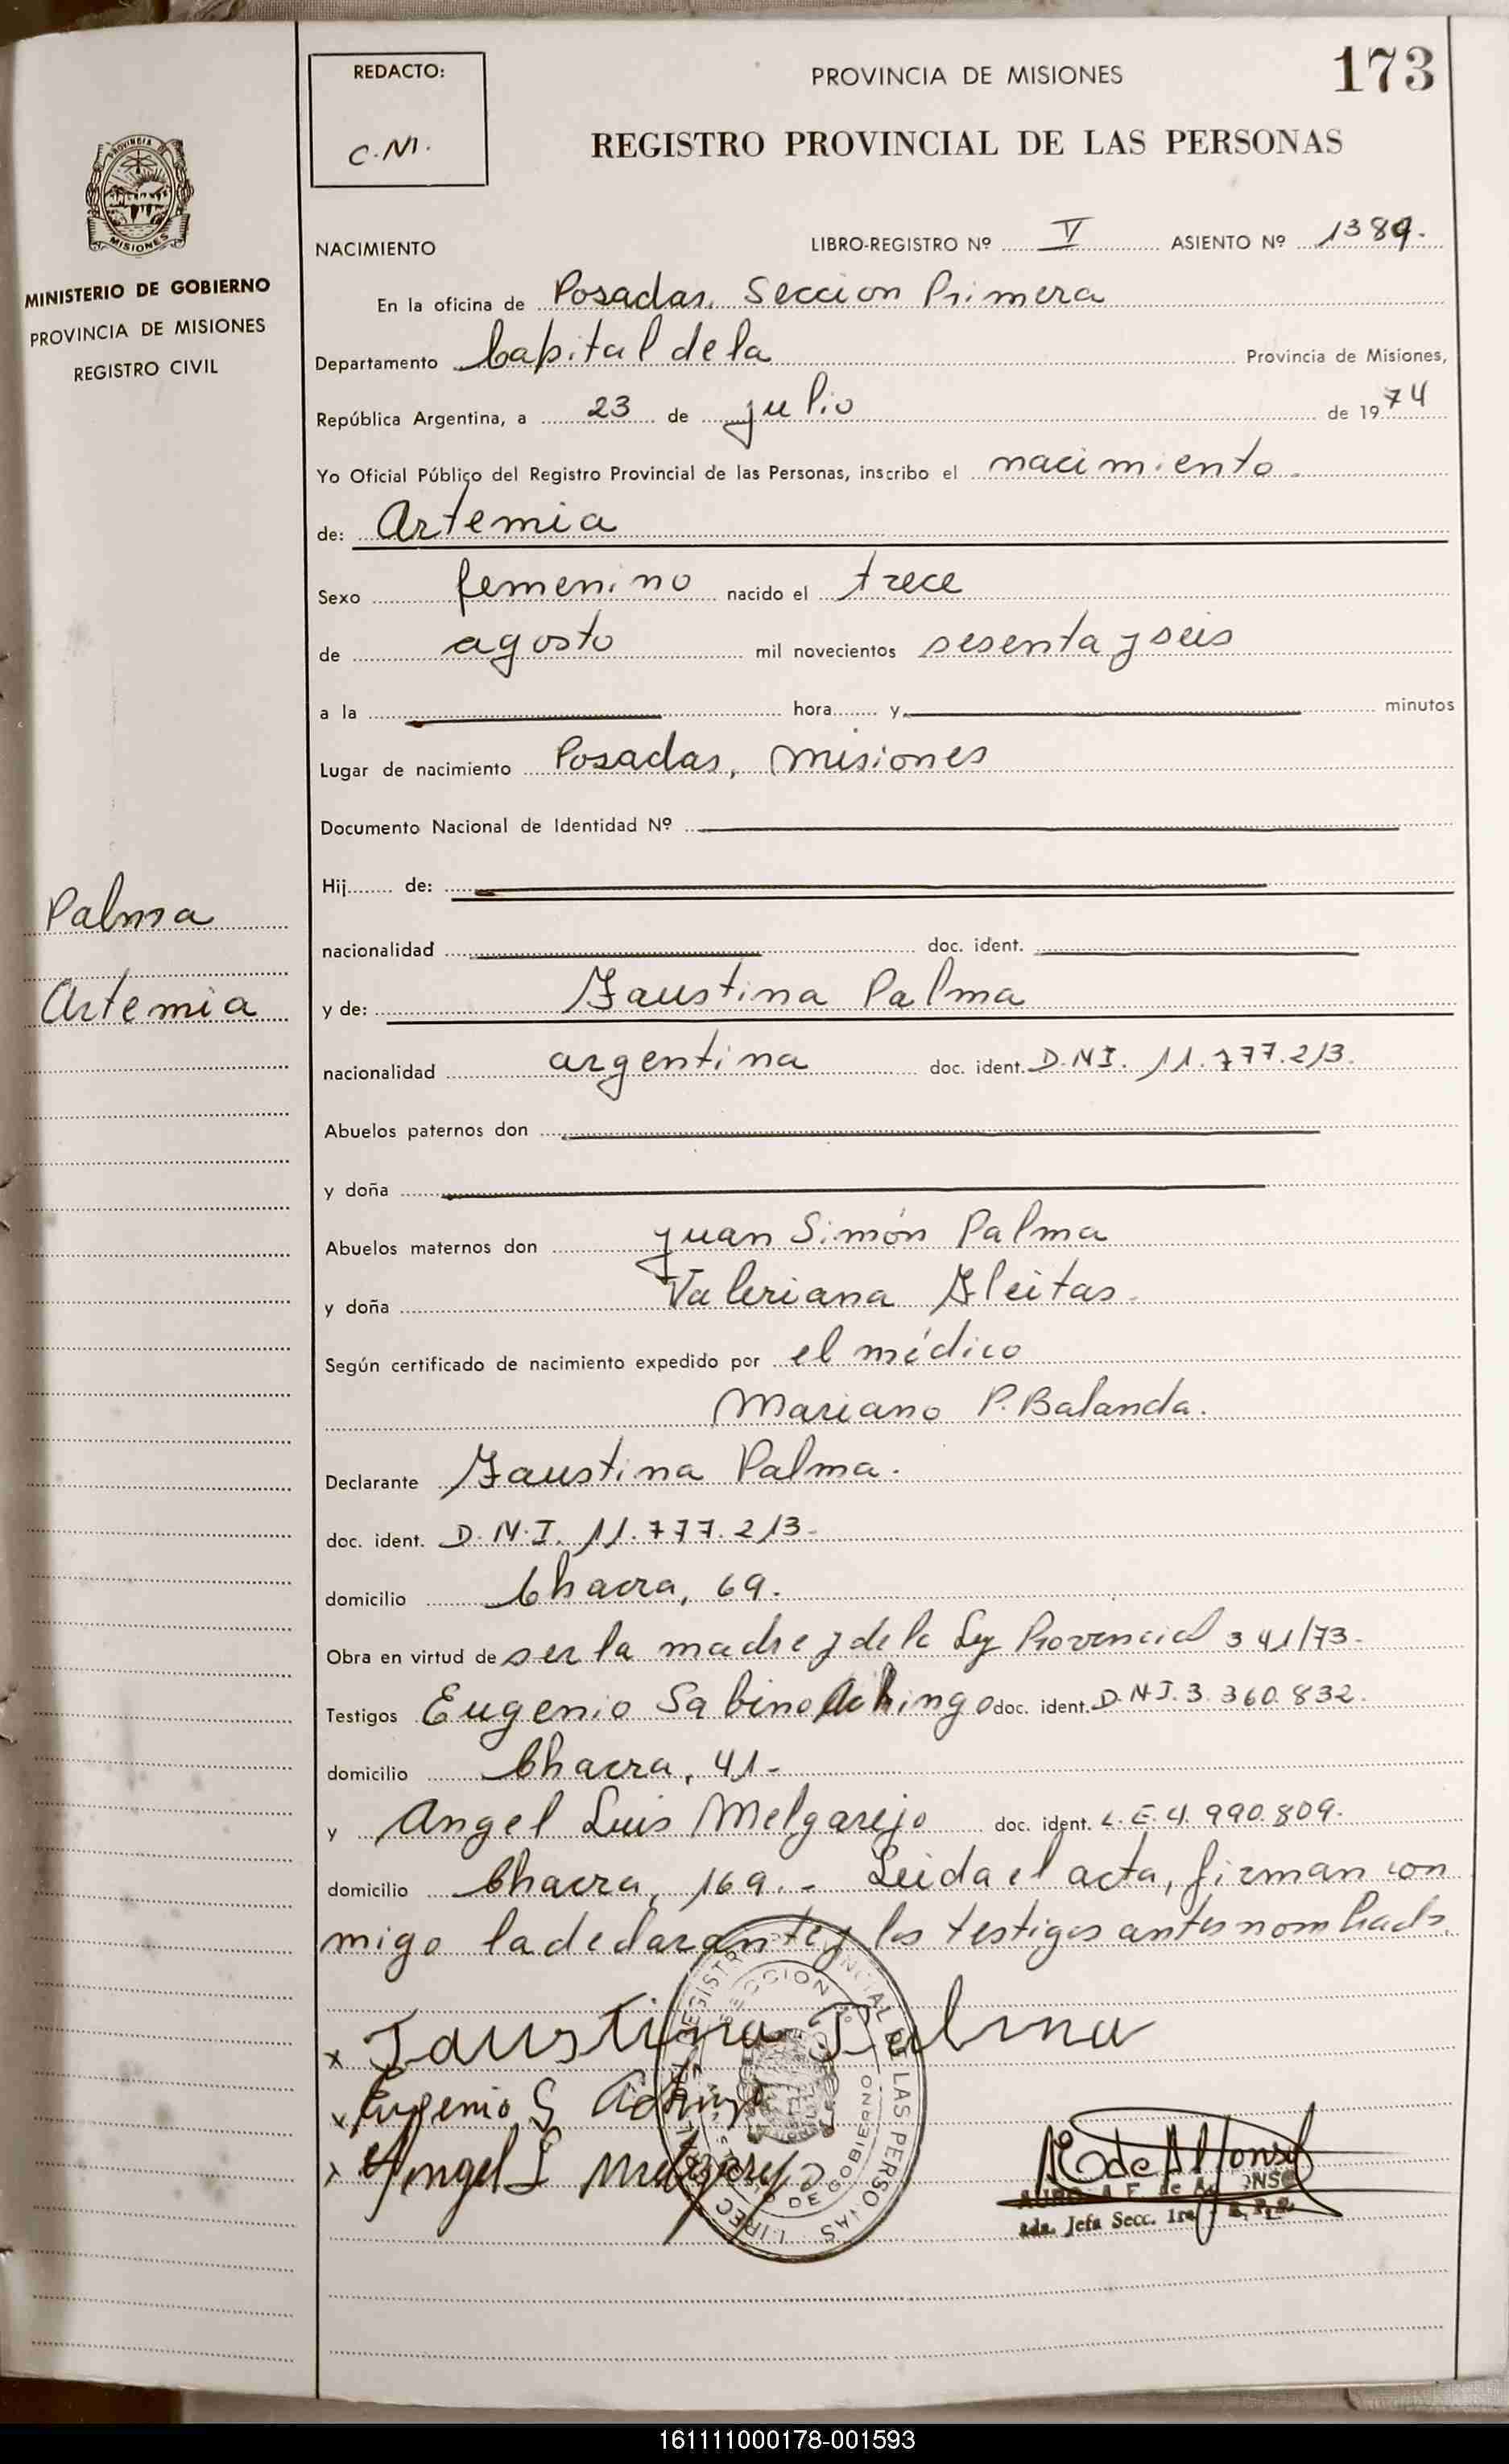 REDACTO:
C.M.
PROVINCIA DE MISIONES
173
REGISTRO PROVINCIAL DE LAS PERSONAS
PROVINCIA DE
MISIONES
MINISTERIO DE GOBIERNO
PROVINCIA DE MISIONES
REGISTRO CIVIL
NACIMIENTO
LIBRO-REGISTRO Nº V ASIENTO Nº 1389.
En la oficina de Posadas, Seccion Primera
Departamento Capital de la Provincia de Misiones,
República Argentina, a 23 de julio de 1974
Yo Oficial Público del Registro Provincial de las Personas, inscribo el nacimiento
de: Artemia
Sexo femenino nacido el trece
de agosto mil novecientos sesenta y seis
a la hora y minutos
Lugar de nacimiento Posadas, Misiones
Documento Nacional de Identidad Nº
Hij de:
Palma
nacionalidad doc. ident.
Artemia
y de: Faustina Palma
nacionalidad argentina doc. ident. D.N.I. 11.777.213.
Abuelos paternos don
y doña
Abuelos maternos don Juan Simón Palma
y doña Valeriana Fleitas.
Según certificado de nacimiento expedido por el médico
Mariano P. Balanda.
Declarante Faustina Palma.
doc. ident. D.N.I. 11.777.213-
domicilio Chacra, 69.
Obra en virtud de ser la madre y de la Ley Provincial 341/73-
Testigos Eugenio Sabino doc. ident. D.N.I. 3.360.832.
domicilio Chacra, 41-
y Angel Luis Melgarejo doc. ident. L.E. 4.990.809.
domicilio Chacra, 169.- Leida el acta, firman con
migo la declarante y los testigos antes nombrados.
x Faustina Palma
x Eugenio S
x Angel L Melgarejo
SECCION
LAS PERSONAS
DE GOBIERNO
A E de Alfonso
Jefa Secc. 1ra
161111000178-001593